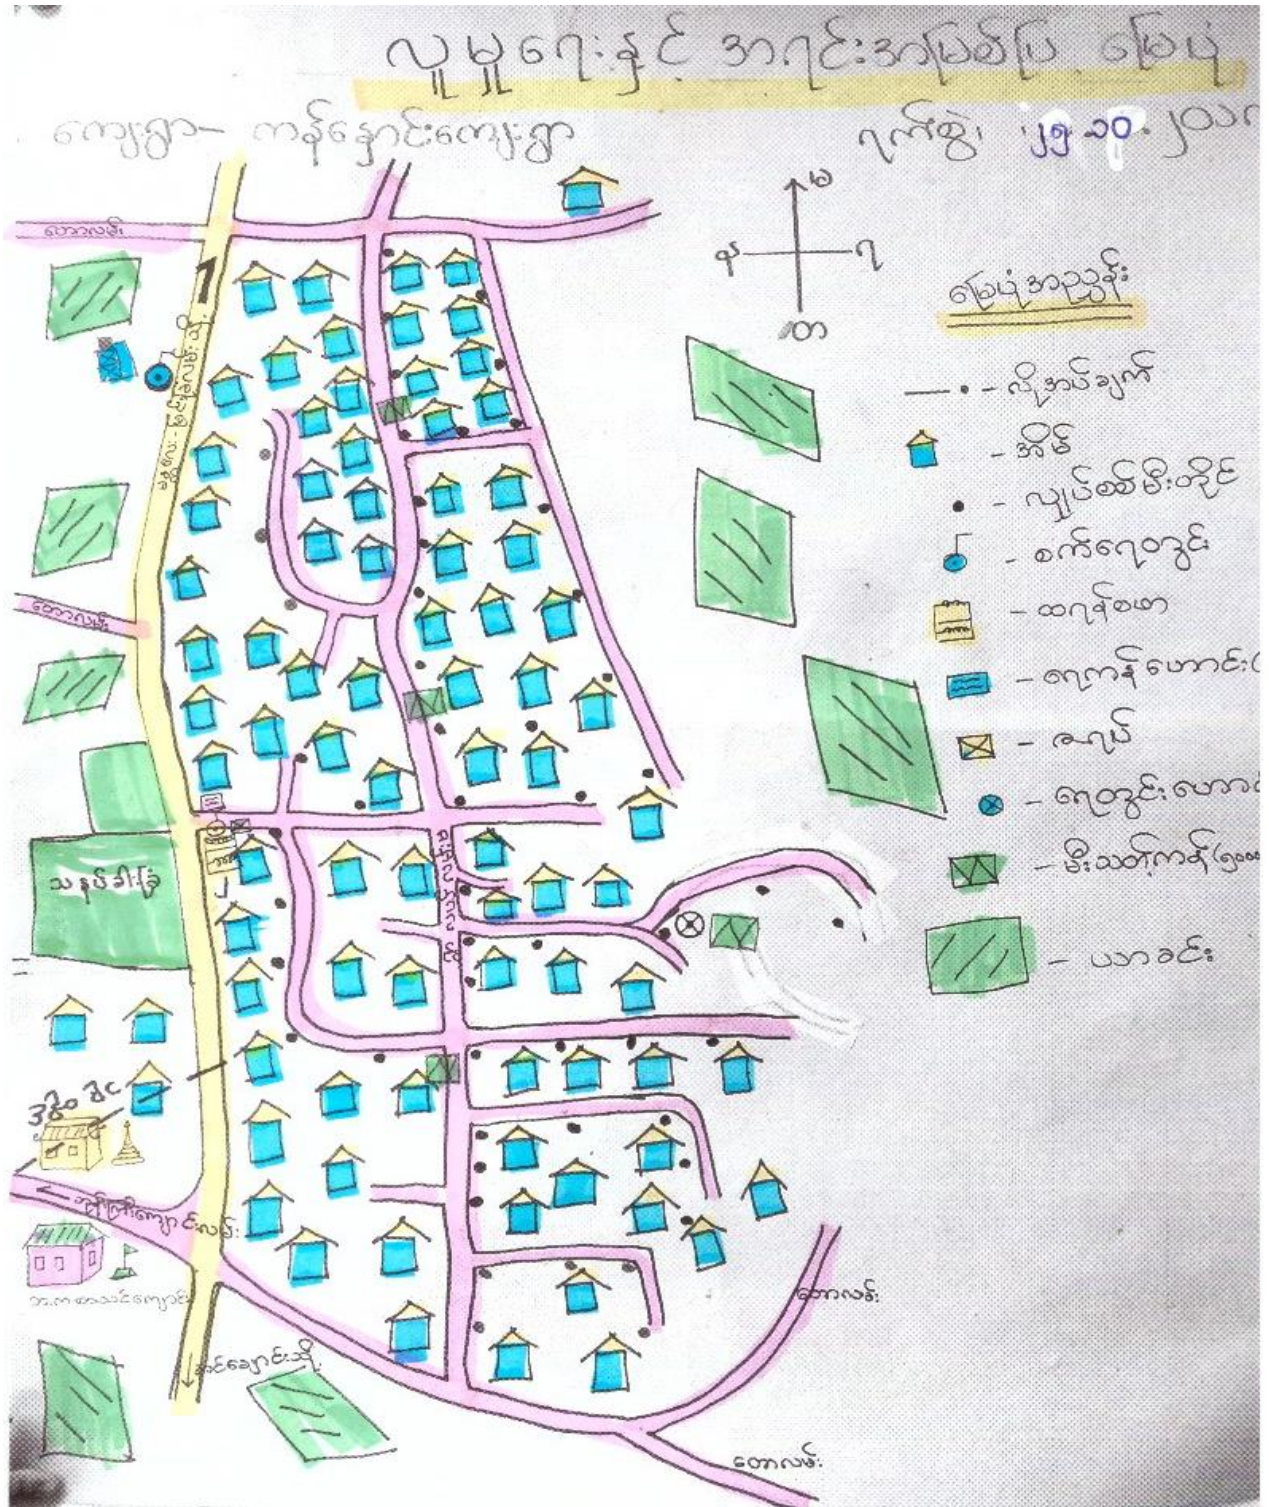 လူမှုရေးနှင့် အရင်းအမြစ်ပြ မြေပုံ
ကျေးရွာ- ကန်နှောင်းကျေးရွာ
ရက်စွဲ၊ ၂၅.၁၀.၂၀၁
မ
န
ရ
တ
မြေပုံအညွှန်း
- လိုအပ်ချက်
- အိမ်
- လျှပ်စစ်မီးတိုင်
- စက်ရေတွင်း
- ထရန်စဖာ
- ရေကန်ဟောင်း(
- ဇရပ်
- ရေတွင်းဟောင်
- မီးသတ်ကန် (၅၀၀၀
- ယာခင်း
တောလမ်း
တောလမ်း
သနပ်ခါးခြံ
ဘုန်းကြီးကျောင်းလမ်း
တောလမ်း
တောလမ်း